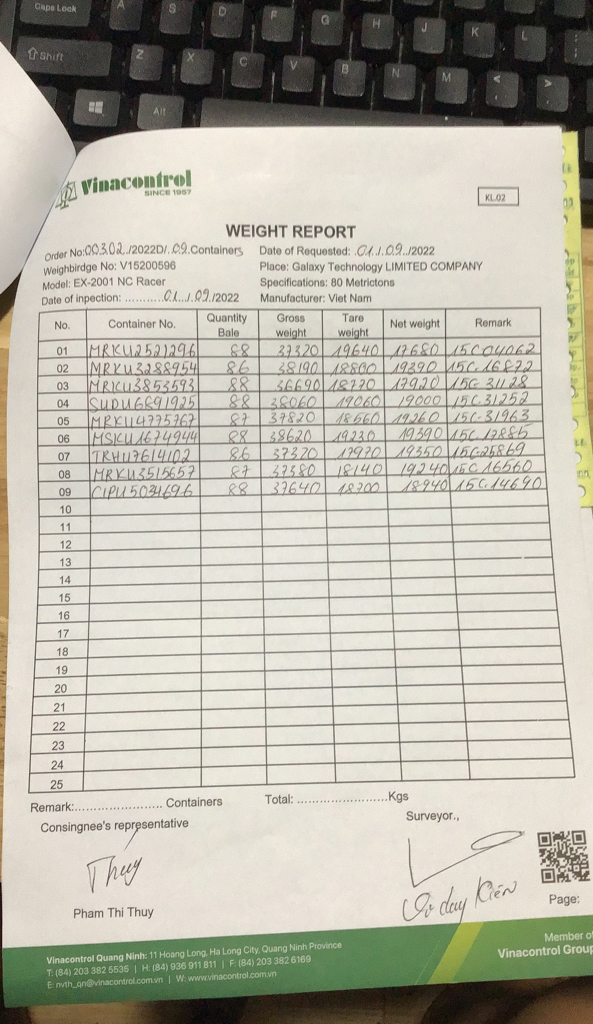 Caps Lock
A
S
D
F
G
H
J
K
L
Shift
Z
X
C
V
B
N
M
Alt
Vinacontrol
SINCE 1957
KL.02
WEIGHT REPORT
Order No:00302./2022D/.09.Containers Date of Requested: .01./.09../2022
Weighbirdge No: V15200596 Place: Galaxy Technology LIMITED COMPANY
Model: EX-2001 NC Racer Specifications: 80 Metrictons
Date of inpection: ...........01../.09./2022 Manufacturer: Viet Nam
No. Container No. Quantity Bale Gross weight Tare weight Net weight Remark
01 MRKU2521296 88 37320 19640 17680 15C04062
02 MRKU3288954 86 38190 18800 19390 15C.16872
03 MRKU3853593 88 36690 18770 17920 15C.31128
04 SUDU6891925 88 38060 19060 19000 15C.31252
05 MRKU4775767 87 37820 18560 19260 15C.31963
06 MSKU1674944 88 38620 19230 19390 15C.17885
07 TRHU7614102 86 37320 17970 19350 15C.25869
08 MRKU3515657 87 37380 18140 19240 15C.16560
09 CIPU5034696 88 37640 18700 18940 15C.14690
10
11
12
13
14
15
16
17
18
19
20
21
22
23
24
25
Remark:....................... Containers Total: ........................Kgs
Consingnee's representative Surveyor.,
Thuy
Pham Thi Thuy
Vũ duy Kiên
Page:
Vinacontrol Quang Ninh: 11 Hoang Long, Ha Long City, Quang Ninh Province
T: (84) 203 382 5535 | H: (84) 936 911 811 | F: (84) 203 382 6169
E: nvth_qn@vinacontrol.com.vn | W: www.vinacontrol.com.vn
Member of
Vinacontrol Group